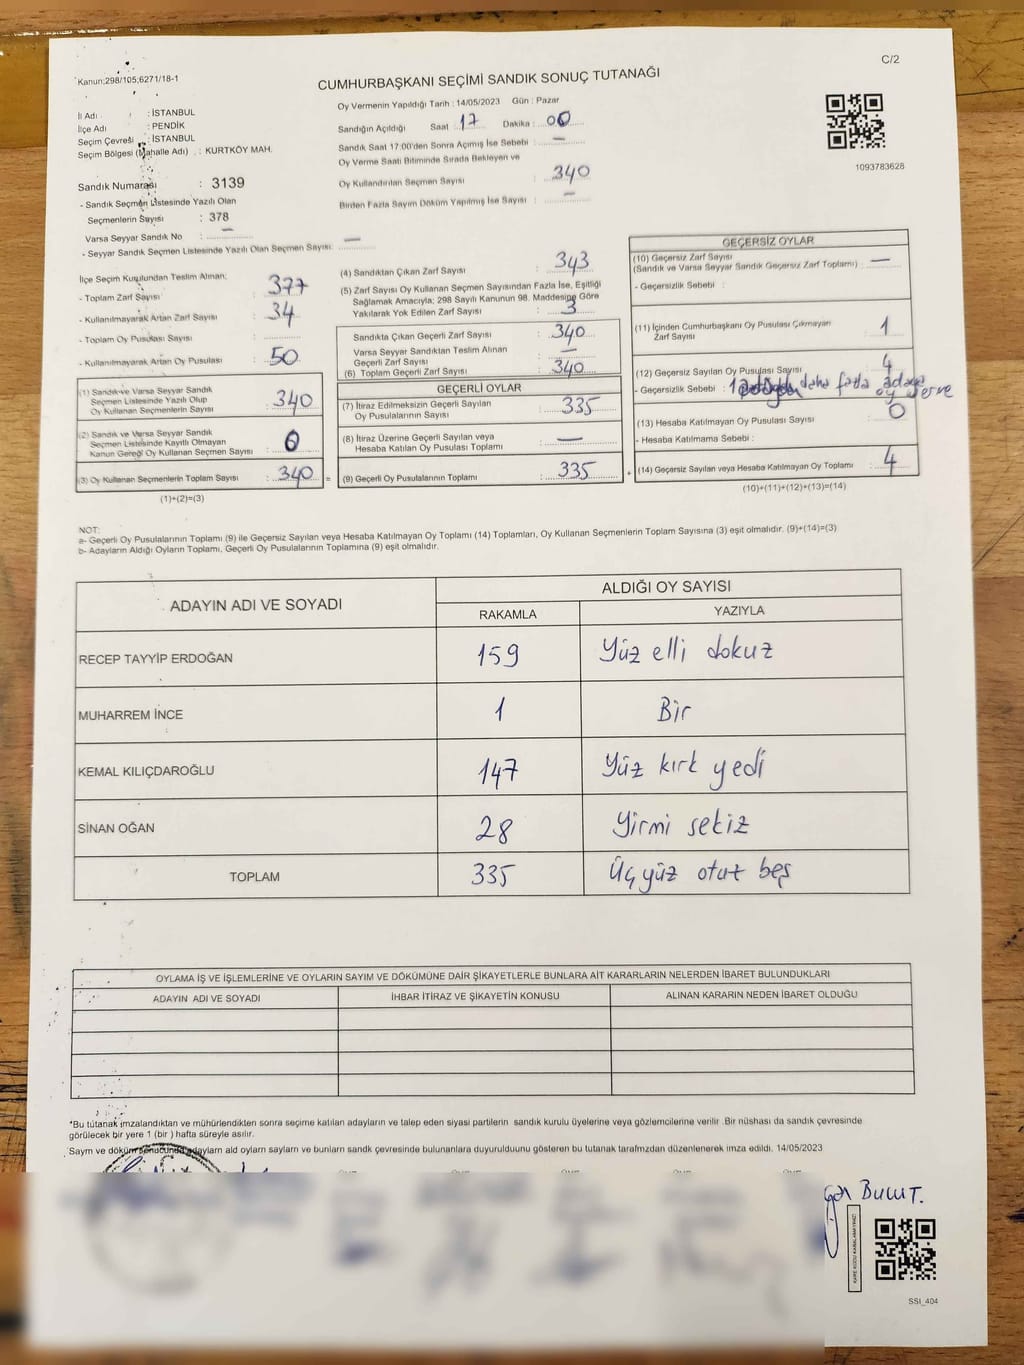 C/2
Kanun;298/105;6271/18-1
CUMHURBAŞKANI SEÇİMİ SANDIK SONUÇ TUTANAĞI
1093783628
İl Adı : İSTANBUL
İlçe Adı : PENDİK
Seçim Çevresi : İSTANBUL
Seçim Bölgesi (Mahalle Adı) : KURTKÖY MAH.
Sandık Numarası : 3139
- Sandık Seçmen Listesinde Yazılı Olan
Seçmenlerin Sayısı : 378
Varsa Seyyar Sandık No : —
- Seyyar Sandık Seçmen Listesinde Yazılı Olan Seçmen Sayısı: —
Oy Vermenin Yapıldığı Tarih : 14/05/2023 Gün : Pazar
Sandığın Açıldığı Saat : 17 Dakika : 00
Sandık Saat 17:00'den Sonra Açımış İse Sebebi : —
Oy Verme Saati Bitiminde Sırada Bekleyen ve
Oy Kullandırılan Seçmen Sayısı : 340
Birden Fazla Sayım Döküm Yapılmış İse Sayısı : —
İlçe Seçim Kurulundan Teslim Alınan;
- Toplam Zarf Sayısı : 377
- Kullanılmayarak Artan Zarf Sayısı : 34
- Toplam Oy Pusulası Sayısı :
- Kullanılmayarak Artan Oy Pusulası : 50
(1) Sandık ve Varsa Seyyar Sandık
Seçmen Listesinde Yazılı Olup
Oy Kullanan Seçmenlerin Sayısı : 340
(2) Sandık ve Varsa Seyyar Sandık
Seçmen Listesinde Kayıtlı Olmayan
Kanun Gereği Oy Kullanan Seçmen Sayısı : 0
(3) Oy Kullanan Seçmenlerin Toplam Sayısı : 340 =
(1)+(2)=(3)
(4) Sandıktan Çıkan Zarf Sayısı : 343
(5) Zarf Sayısı Oy Kullanan Seçmen Sayısından Fazla İse, Eşitliği
Sağlamak Amacıyla; 298 Sayılı Kanunun 98. Maddesine Göre
Yakılarak Yok Edilen Zarf Sayısı : 3
Sandıkta Çıkan Geçerli Zarf Sayısı : 340
Varsa Seyyar Sandıktan Teslim Alınan
Geçerli Zarf Sayısı : —
(6) Toplam Geçerli Zarf Sayısı : 340
GEÇERLİ OYLAR
(7) İtiraz Edilmeksizin Geçerli Sayılan
Oy Pusulalarının Sayısı : 335
(8) İtiraz Üzerine Geçerli Sayılan veya
Hesaba Katılan Oy Pusulası Toplamı : —
(9) Geçerli Oy Pusulalarının Toplamı : 335 +
GEÇERSİZ OYLAR
(10) Geçersiz Zarf Sayısı
(Sandık ve Varsa Seyyar Sandık Geçersiz Zarf Toplamı) : —
- Geçersizlik Sebebi :
(11) İçinden Cumhurbaşkanı Oy Pusulası Çıkmayan
Zarf Sayısı : 1
(12) Geçersiz Sayılan Oy Pusulası Sayısı : 4
- Geçersizlik Sebebi : 1 daha fazla adaya
oy verme
(13) Hesaba Katılmayan Oy Pusulası Sayısı : 0
- Hesaba Katılmama Sebebi :
(14) Geçersiz Sayılan veya Hesaba Katılmayan Oy Toplamı : 4
(10)+(11)+(12)+(13)=(14)
NOT:
a- Geçerli Oy Pusulalarının Toplamı (9) ile Geçersiz Sayılan veya Hesaba Katılmayan Oy Toplamı (14) Toplamları, Oy Kullanan Seçmenlerin Toplam Sayısına (3) eşit olmalıdır. (9)+(14)=(3)
b- Adayların Aldığı Oyların Toplamı, Geçerli Oy Pusulalarının Toplamına (9) eşit olmalıdır.
ADAYIN ADI VE SOYADI ALDIĞI OY SAYISI
RAKAMLA YAZIYLA
RECEP TAYYİP ERDOĞAN 159 Yüz elli dokuz
MUHARREM İNCE 1 Bir
KEMAL KILIÇDAROĞLU 147 Yüz kırk yedi
SİNAN OĞAN 28 Yirmi sekiz
TOPLAM 335 Üç yüz otuz beş
OYLAMA İŞ VE İŞLEMLERİNE VE OYLARIN SAYIM VE DÖKÜMÜNE DAİR ŞİKAYETLERLE BUNLARA AİT KARARLARIN NELERDEN İBARET BULUNDUKLARI
ADAYIN ADI VE SOYADI İHBAR İTİRAZ VE ŞİKAYETİN KONUSU ALINAN KARARIN NEDEN İBARET OLDUĞU
*Bu tutanak imzalandıktan ve mühürlendikten sonra seçime katılan adayların ve talep eden siyasi partilerin sandık kurulu üyelerine veya gözlemcilerine verilir .Bir nüshası da sandık çevresinde
görülecek bir yere 1 (bir ) hafta süreyle asılır.
Saym ve döküm sonucunda adaylarn ald oylarn saylarn ve bunlarn sandk çevresinde bulunanlara duyurulduunu gösteren bu tutanak tarafmzdan düzenlenerek imza edildi. 14/05/2023
Bulut.
SSI_404